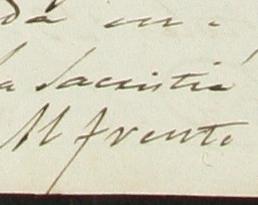 da en
la Sacristia
Al frente